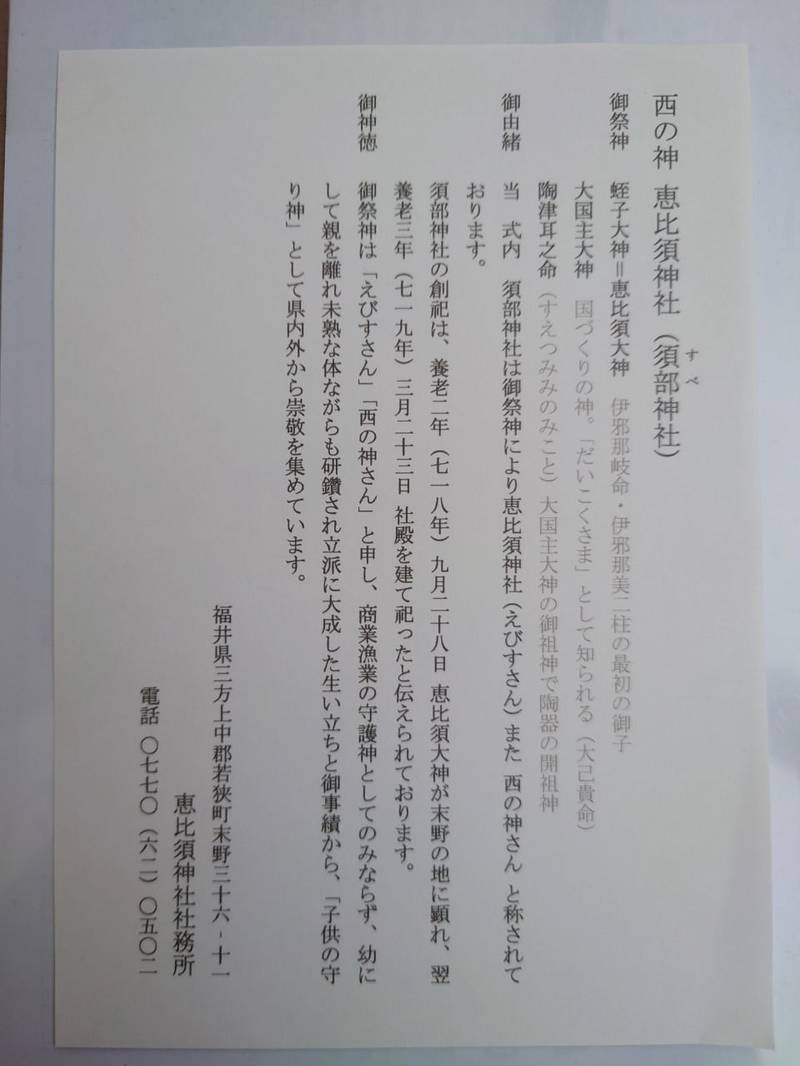 西の神 恵比須神社（須部神社）
すべ
御祭神 蛭子大神＝恵比須大神 伊邪那岐命・伊邪那美二柱の最初の御子
大国主大神 国づくりの神。「だいこくさま」として知られる（大己貴命）
陶津耳之命（すえつみみのみこと）大国主大神の御祖神で陶器の開祖神
御由緒 当 式内 須部神社は御祭神により恵比須神社（えびすさん）また 西の神さん と称されて
おります。
須部神社の創祀は、養老二年（七一八年）九月二十八日 恵比須大神が末野の地に顕れ、翌
養老三年（七一九年）三月二十三日 社殿を建て祀ったと伝えられております。
御神徳 御祭神は「えびすさん」「西の神さん」と申し、商業漁業の守護神としてのみならず、幼に
して親を離れ未熟な体ながらも研鑽され立派に大成した生い立ちと御事績から、「子供の守
り神」として県内外から崇敬を集めています。
福井県三方上中郡若狭町末野三十六-十一
恵比須神社社務所
電話 〇七七〇（六二）〇五〇二